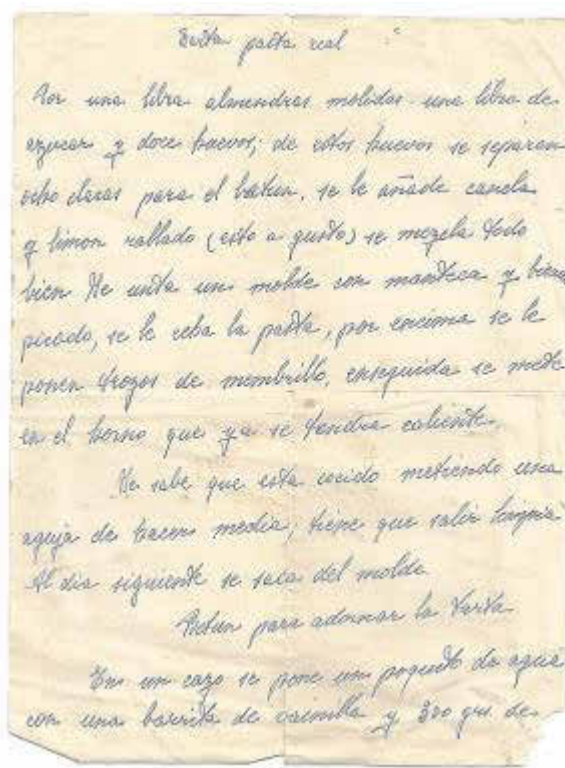 Torta pasta real
Por una libra almendras molidas una libra de
azucar y doce huevos; de estos huevos se separan
ocho claras para el batun, se le añade canela
y limon rallado (esto a gusto) se mezcla todo
bien Se unta un molde con manteca y
picado, se le echa la pasta, por encima se le
ponen trozos de membrillo, enseguida se mete
en el horno que ya se tendra caliente.
Se sabe que esta cocido metiendo una
aguja de hacer media, tiene que salir limpia
Al dia siguiente se saca del molde
Batun para adornar la torta
En un cazo se pone un poquito de agua
con una barrita de vainilla y 300 grs. de